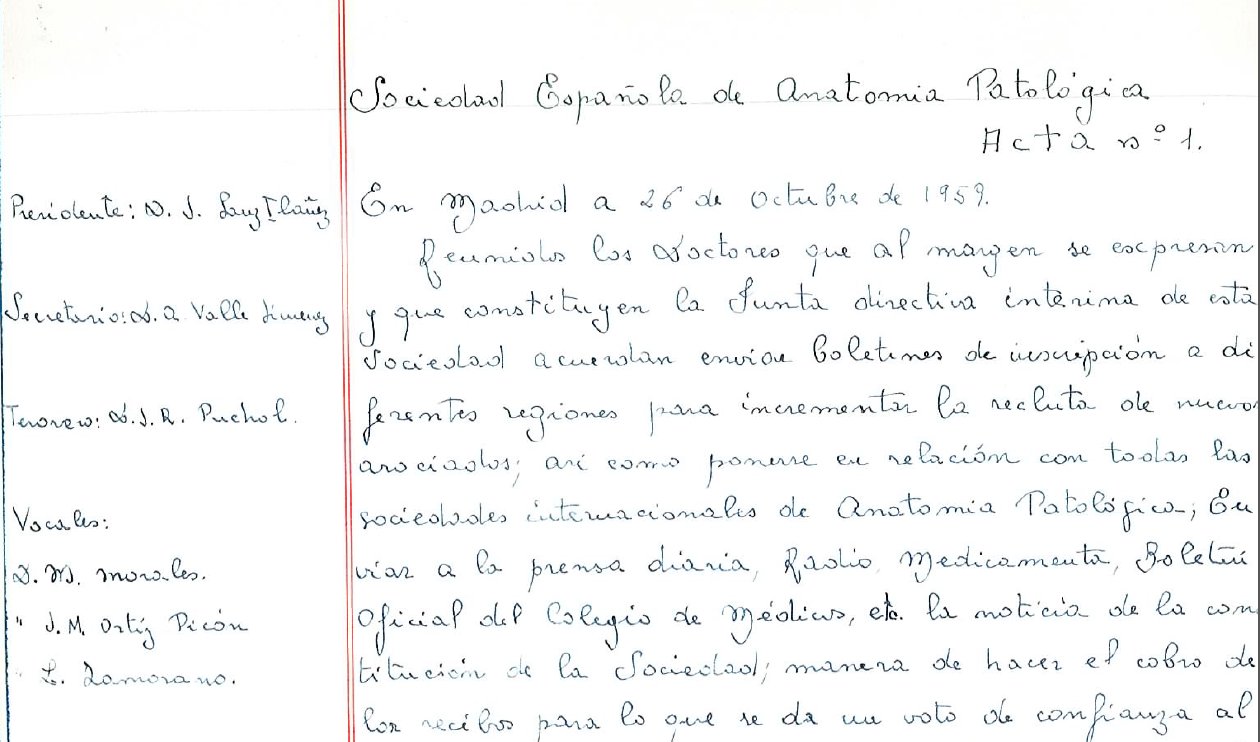 Sociedad Española de Anatomia Patológica
Acta nº 1.
Presidente: D. J. Sanz Ibáñez
Secretario: D. A. Valle Jimenez
Tesorero: D. J. R. Puchol.
Vocales:
D. M. Morales.
" J. M. Ortíz Picón
" L. Zamorano.
En Madrid a 26 de Octubre de 1959.
Reunidos los Doctores que al margen se expresan
y que constituyen la Junta directiva interina de esta
Sociedad acuerdan enviar Boletines de inscripción a di
ferentes regiones para incrementar la recluta de nuevos
asociados; así como ponerse en relación con todas las
sociedades internacionales de Anatomia Patológica; En
viar a la prensa diaria, Radio, Medicamenta, Boletín
Oficial del Colegio de Médicos, etc. la noticia de la con
titución de la Sociedad; manera de hacer el cobro de
los recibos para lo que se da un voto de confianza al